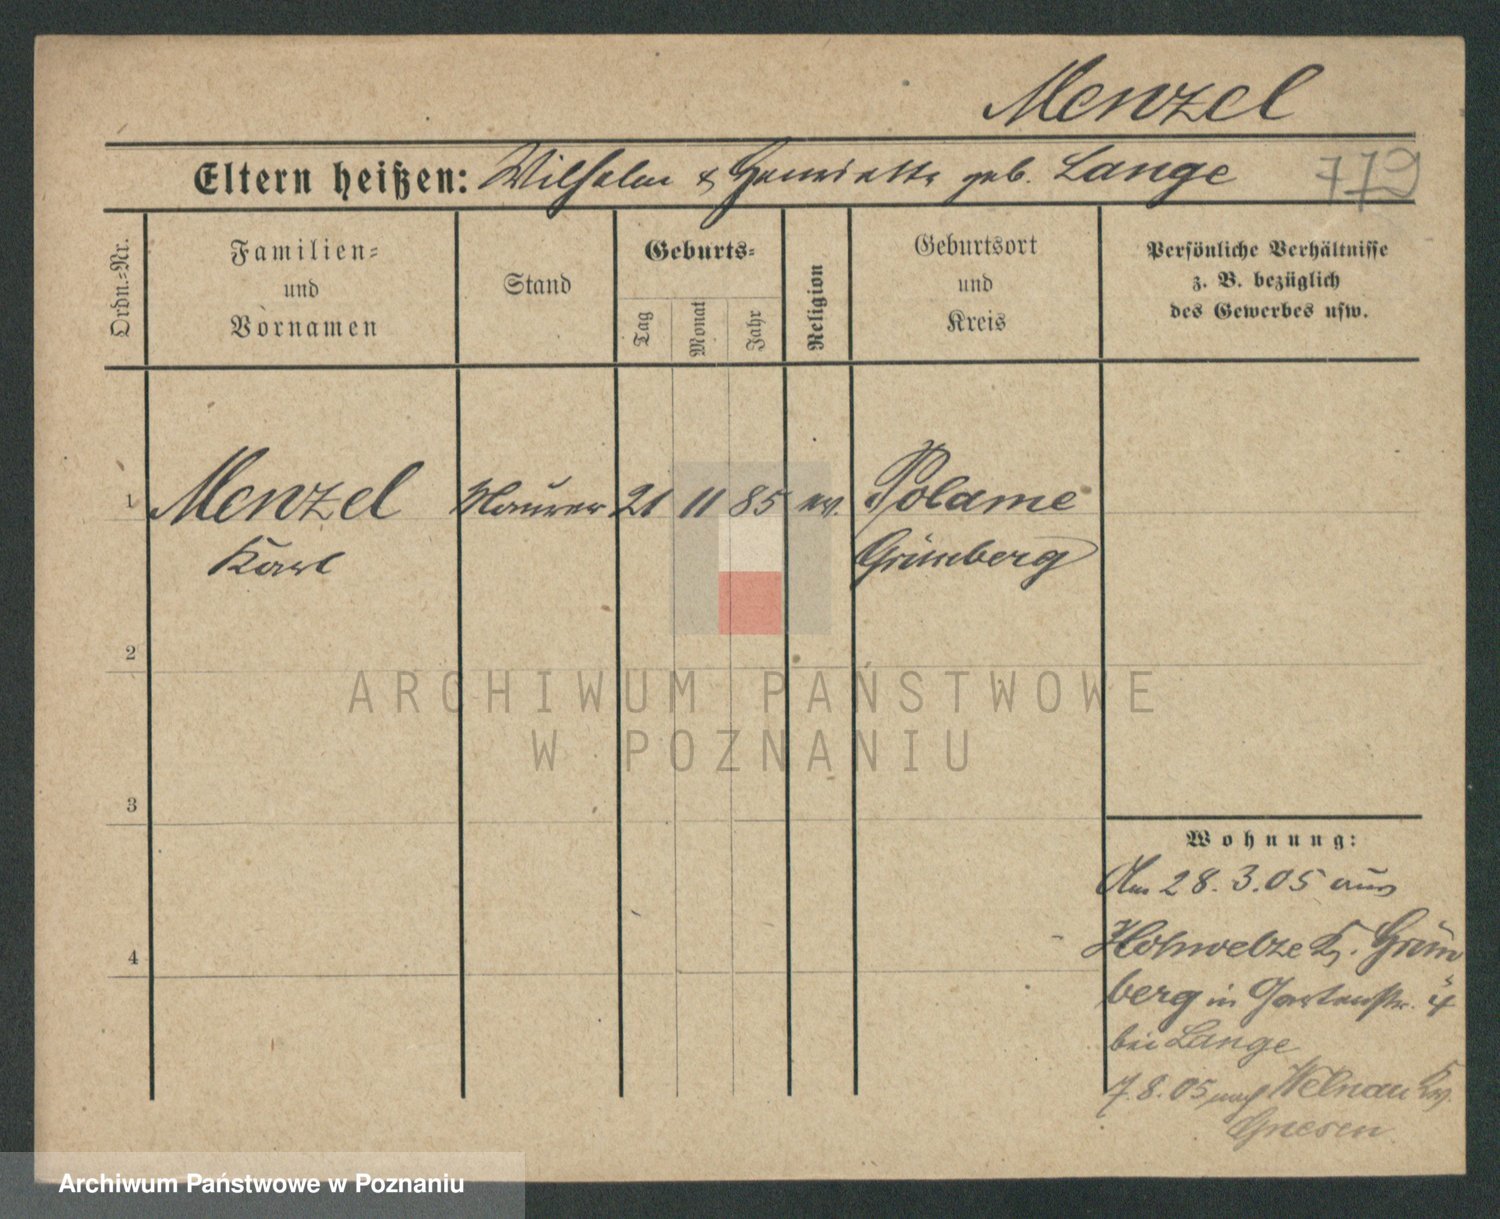 Menzel
Eltern heißen: Wilhelm & Henriette geb. Lange
772
Ordn.-Nr.
Familien-
und
Vornamen
Stand
Geburts-
Tag
Monat
Jahr
Religion
Geburtsort
und
Kreis
Persönliche Verhältnisse
z. B. bezüglich
des Gewerbes usw.
1 Menzel Maurer 21 11 85 ev. Polame
Karl Grünberg
2
ARCHIWUM PAŃSTWOWE
W POZNANIU
3
4
Wohnung:
Am 28.3.05 aus
Hohwelze Kr. Grün
berg in Gartenstr. 4
bei Lange
7.8.05 nach Welnau Kr.
Gnesen
Archiwum Państwowe w Poznaniu